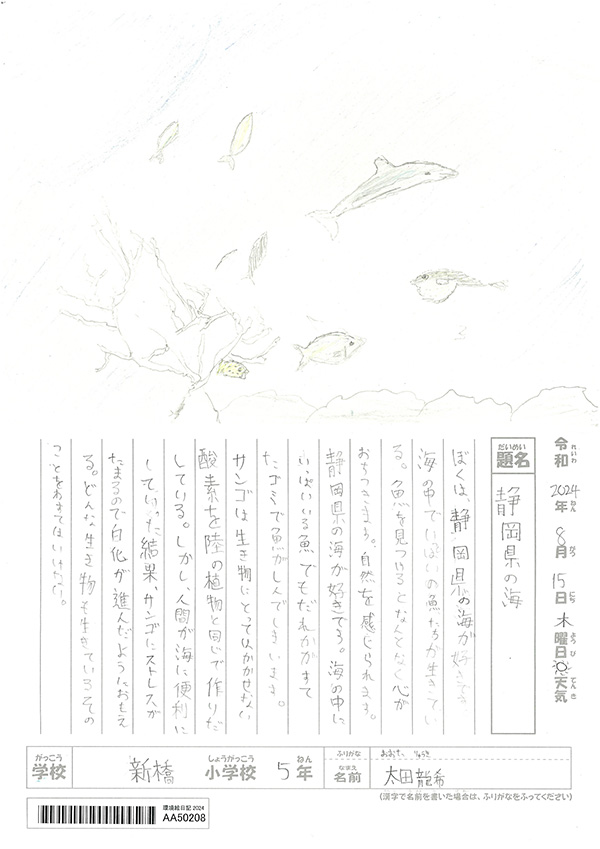 令和 2024年 8月 15日 木曜日 天気
れいわ ねん がつ にち ようび てんき
だいめい
題名
静岡県の海
ぼくは、静岡県の海が好きです
海の中でいっぱいの魚たちが生きてい
る。魚を見つけるとなんとなく心が
おちつきます。自然を感じられます。
静岡県の海が好きです。海の中に
いっぱいいる魚でもだれかがすて
たゴミで魚がしんでしまいます。
サンゴは生き物にとってひかかせない
酸素を陸の植物と同じで作りだ
している。しかし、人間が海に便利に
していった結果、サンゴにストレスが
たまるので白化が進んだようにおもえ
る。どんな生き物も生きているその
ことをわすてはいけない。
がっこう
学校
新橋
しょうがっこう
小学校
5
ねん
年
ふりがな
なまえ
名前
太田龍希
(漢字で名前を書いた場合は、ふりがなをふってください)
環境絵日記 2024
AA50208